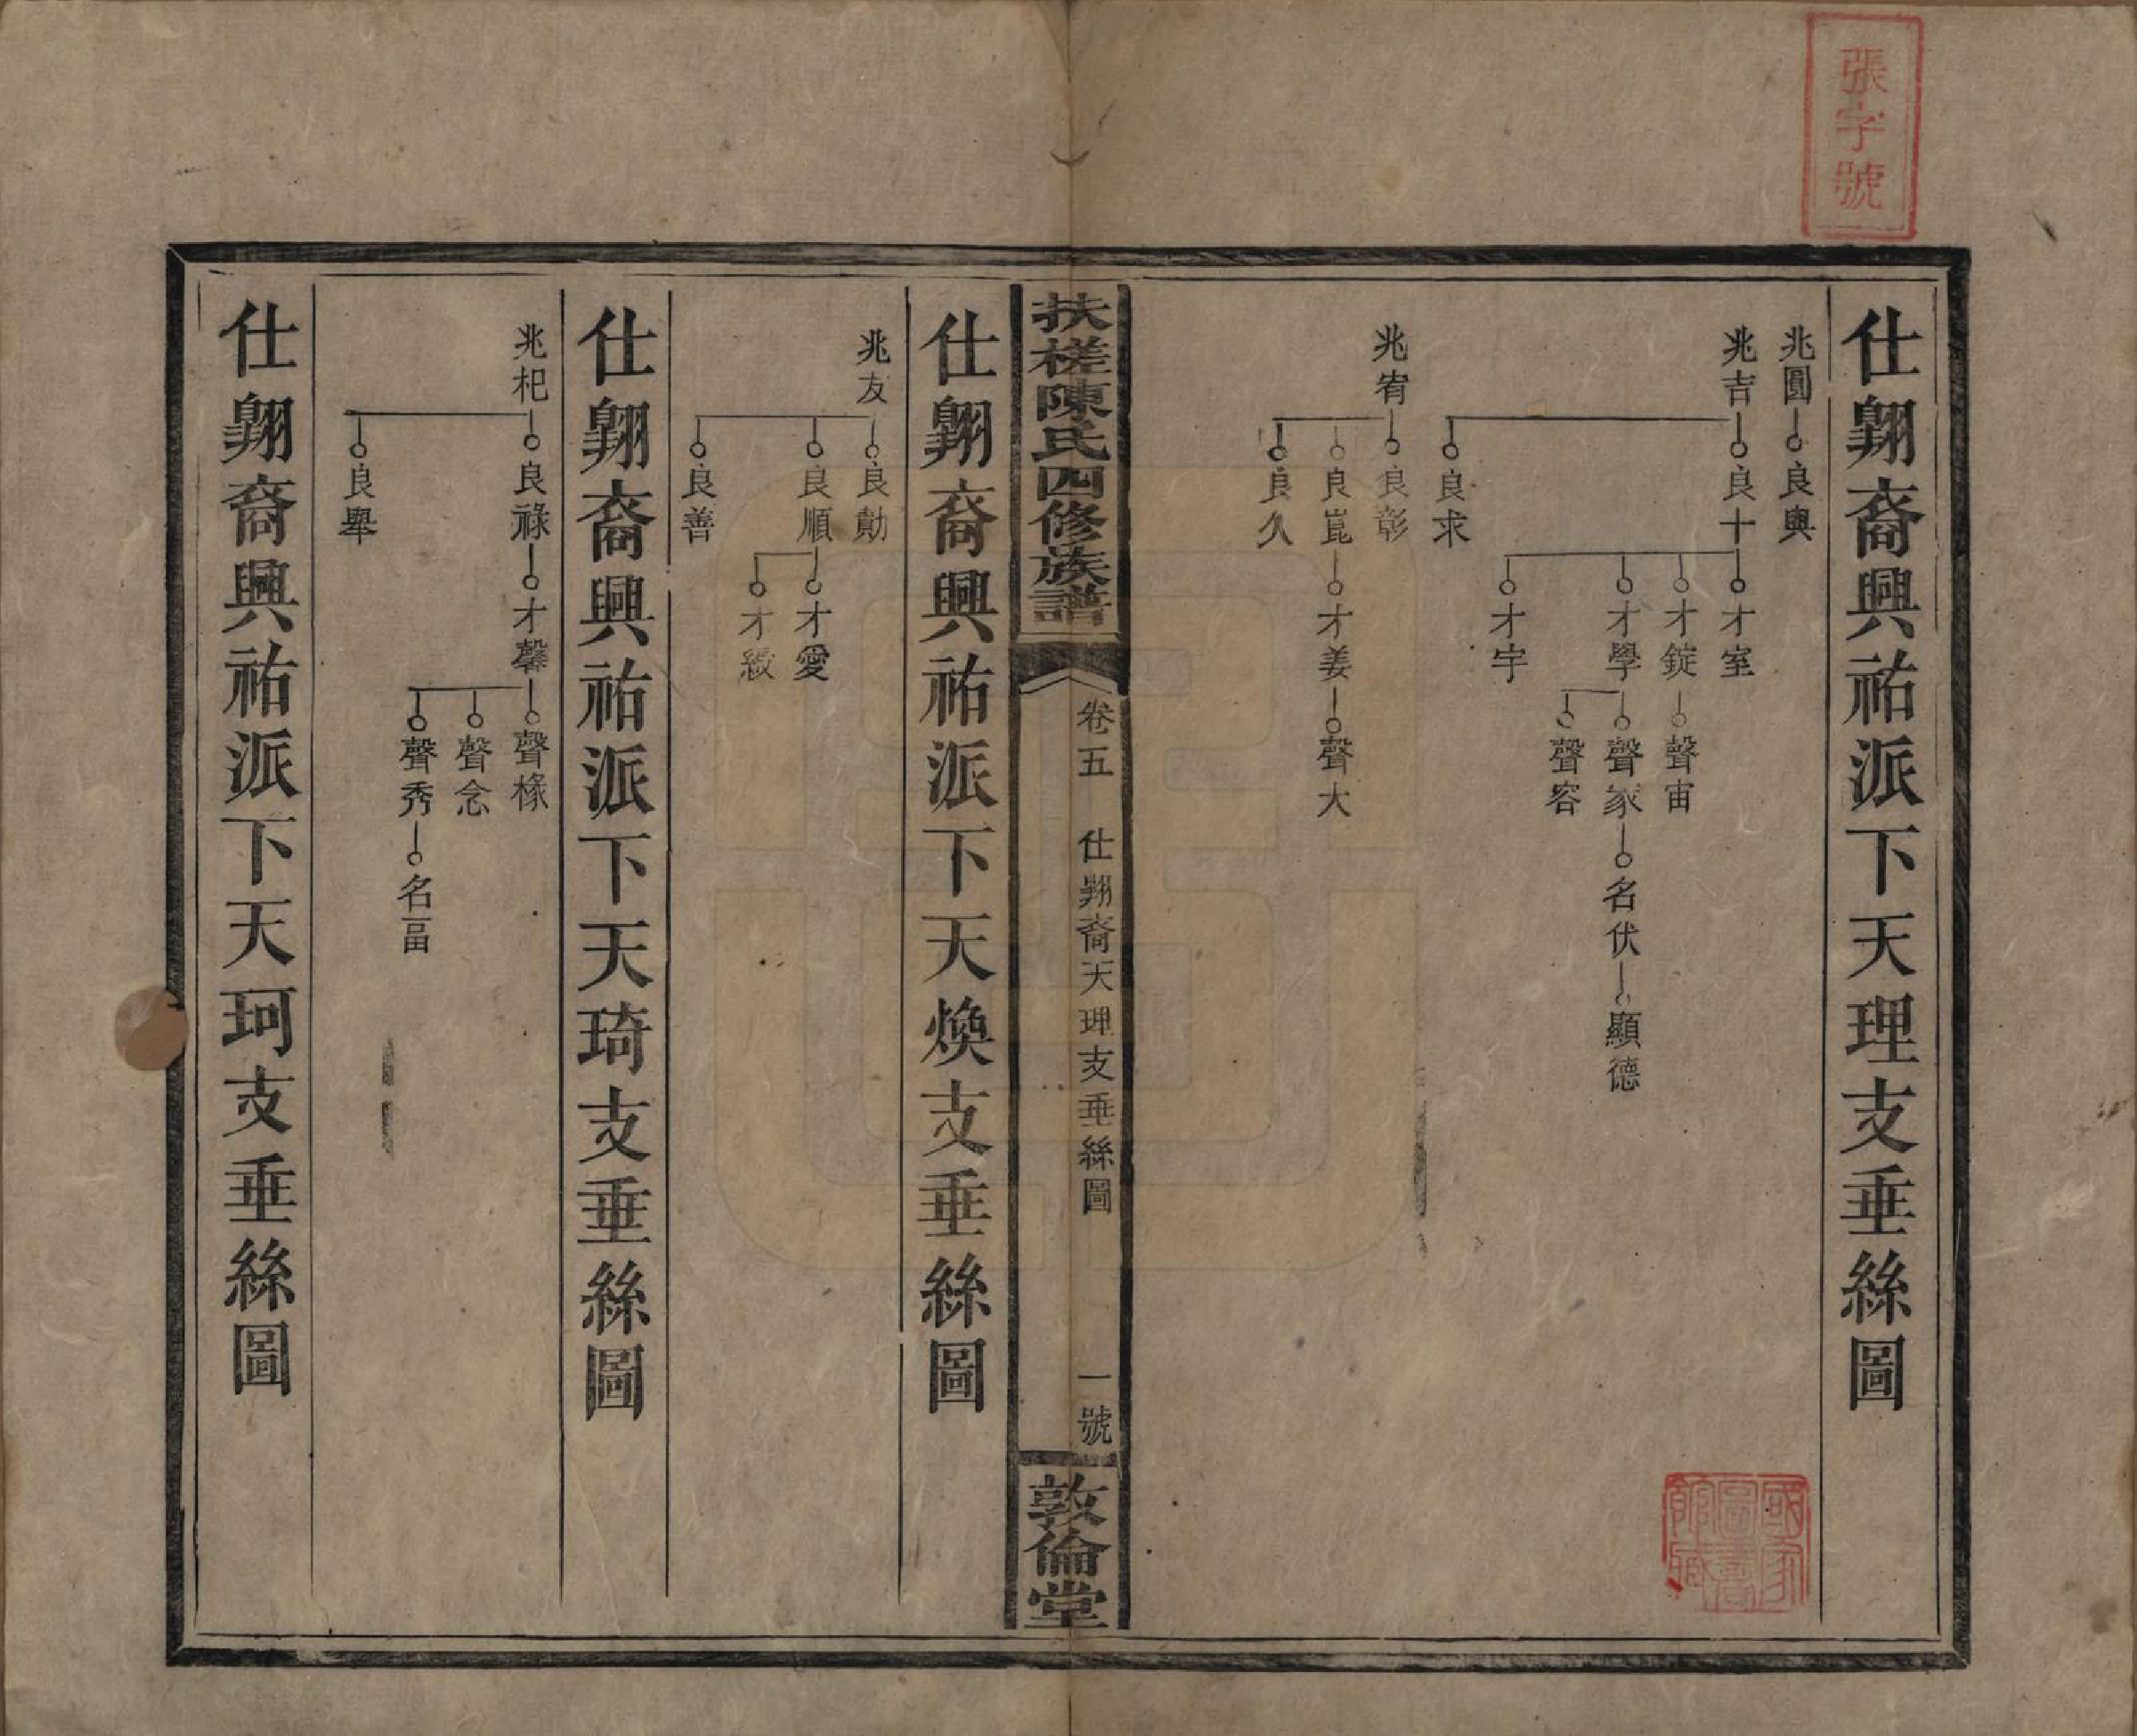 張字號
仕翺裔興祐派下天理支垂絲圖
兆圓 良輿
兆吉 良十 才室
才錠 聲宙
才學 聲家 名伏 顯德
聲容
才宇
良求
兆宥 良彰
良崑 才姜 聲大
良久
扶槎陳氏四修族譜
卷五 仕翺裔天理支垂絲圖 一號
敦倫堂
仕翺裔興祐派下天煥支垂絲圖
兆友 良勛
良順 才愛
才緻
良善
仕翺裔興祐派下天琦支垂絲圖
兆杞 良祿 才馨 聲椽
聲念
聲秀 名畐
良舉
仕翺裔興祐派下天珂支垂絲圖
國家圖書館藏